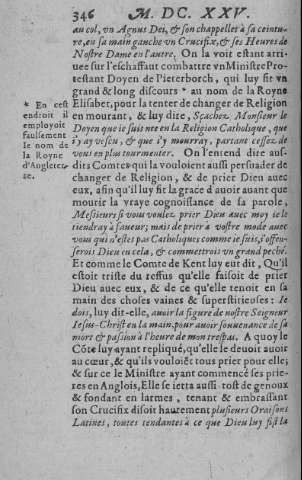 346 M. DC. XXV.
au col, vn Agnus Dei, & son chappellet à sa ceintu-
re, en sa main ganche vn Crucifix, & ses Heures de
Nostre Dame en l'autre. On la voit estant arri-
uee sur l'eschaffaut combattre vn Ministre Pro-
testant Doyen de Pieterborch, qui luy fit vn
grand & long discours * au nom de la Royne
Elisabet, pour la tenter de changer de Religion
en mourant, & luy dire, Sçachez Monsieur le
Doyen que ie suis nee en la Religion Catholique, que
i'y ay vescu, & que i'y mourray, partant cessez de
vous en plus tourmenter. On l'entend dire aus-
dits Comtes qui la vouloient aussi persuader de
changer de Religion, & de prier Dieu auec
eux, afin qu'il luy fit la grace d'auoir auant que
mourir la vraye cognoissance de sa parole,
Messieurs si vous voulez prier Dieu auec moy ie le
tiendray à faueur; mais de prier à vostre mode auec
vous qui n'estes pas Catholiques comme ie suis, i'offen-
serois Dieu en cela, & commettrois vn grand peché.
Et comme le Comte de Kent luy eut dit, Qu'il
estoit triste du reffus qu'elle faisoit de prier
Dieu auec eux, & de ce qu'elle tenoit en sa
main des choses vaines & superstitieuses: Ie
dois, luy dit-elle, auoir la figure de nostre Seigneur
Iesus-Christ en la main, pour auoir souuenance de sa
mort & passion à l'heure de mon trespas. A quoy le
Côte luy ayant repliqué, qu'elle le deuoit auoir
au cœur, & qu'ils vouloiẽt tous prier pour elle;
& sur ce le Ministre ayant commencé ses prie-
res en Anglois, Elle se ietta aussi-tost de genoux
& fondant en larmes, tenant & embrassant
son Crucifix disoit hautement plusieurs Oraisons
Latines, toutes tendantes à ce que Dieu luy fist la
* En cest
endroit il
employoit
faulsement
le nom de
la Royne
d'Angleter-
re.